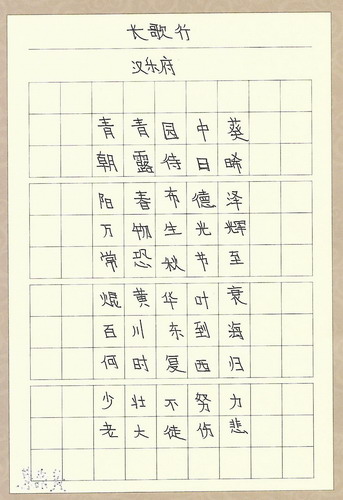 长歌行
汉乐府
青青园中葵
朝露侍日晞
阳春布德泽
万物生光辉
常恐秋节至
焜黄华叶衰
百川东到海
何时复西归
少壮不努力
老大徒伤悲